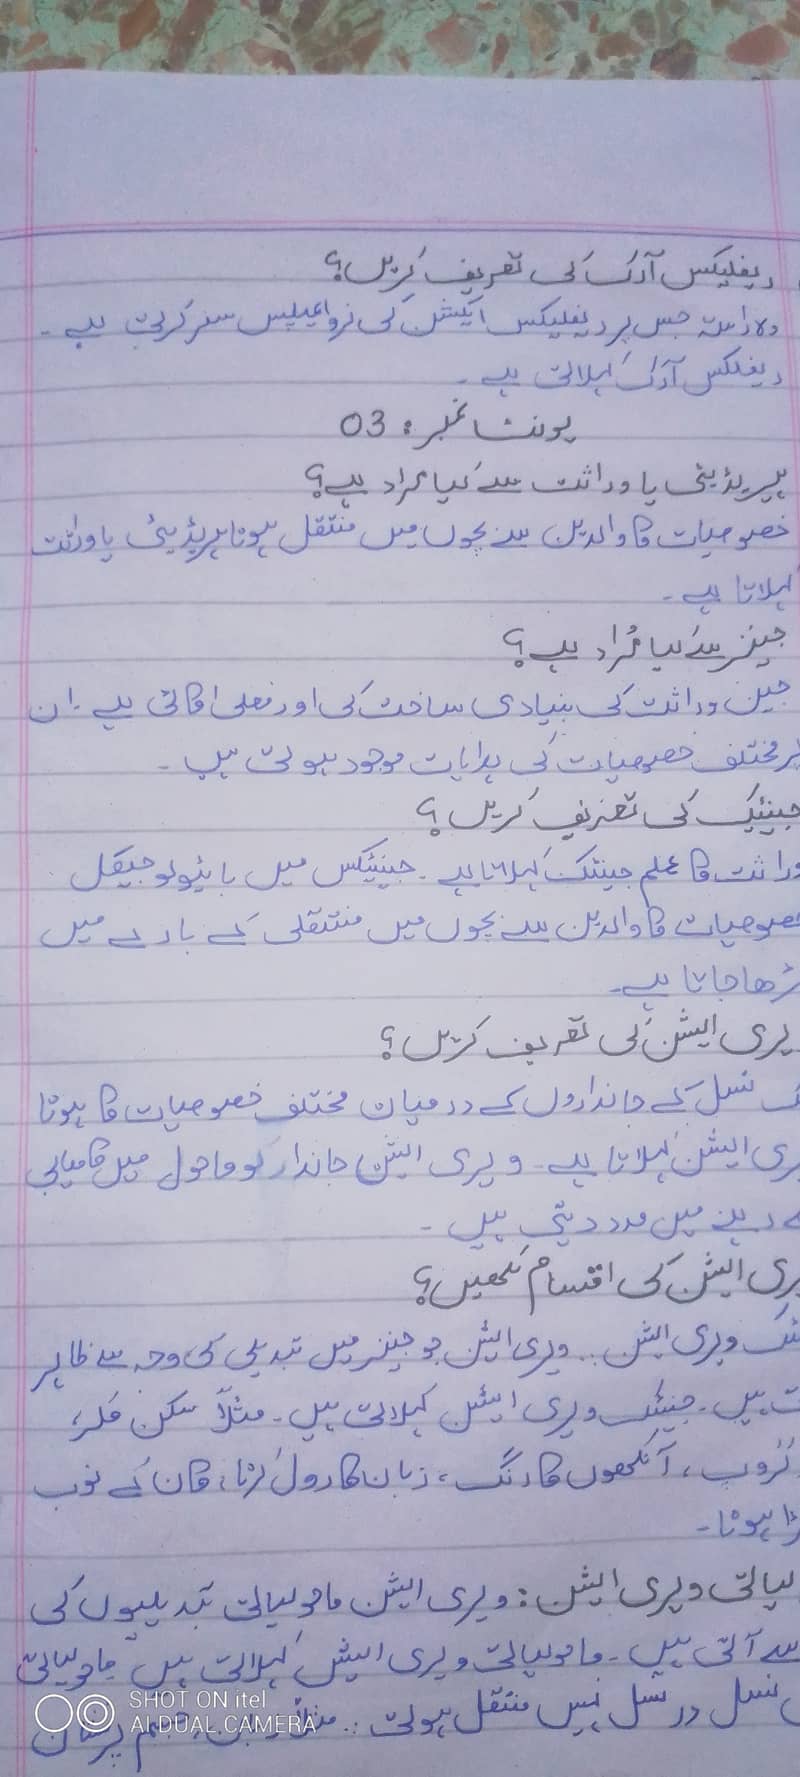 ریفلیکس آرک کی تعریف کریں؟
وہ راستہ جس پر ریفلیکس ایکشن کی نرو امپلس سفر کرتی ہے۔
ریفلکس آرک کہلاتی ہے۔
یونٹ نمبر: 03
ہیریڈیٹی یا وراثت سے کیا مراد ہے؟
خصوصیات کا والدین سے بچوں میں منتقل ہونا ہریڈیٹی یا وراثت
کہلاتا ہے۔
جینز سے کیا مُراد ہے؟
جین وراثت کی بنیادی ساخت کی اور فعلی اکائی ہے۔ ان
پر مختلف خصوصیات کی ہدایات موجود ہوتی ہیں۔
جینیٹک کی تعریف کریں؟
وراثت کا علم جینٹک کہلاتا ہے۔ جینیٹکس میں بائیولوجیکل
خصوصیات کا والدین سے بچوں میں منتقلی کے بارے میں
پڑھا جاتا ہے۔
یری ایشن کی تعریف کریں؟
ک نسل کے جانداروں کے درمیان مختلف خصوصیات کا ہونا
یری ایشن کہلاتا ہے۔ ویری ایشن جاندار کو ماحول میں کامیابی
سے رہنے میں مدد دیتی ہیں۔
یری ایشن کی اقسام لکھیں؟
ٹک ویری ایشن:۔ ویری ایشن جو جینز میں تبدیلی کی وجہ سے ظاہر
ت ہیں۔ جینیٹک ویری ایشن کہلاتی ہیں۔ مثلاً سکن کلر،
گروپ، آنکھوں کا رنگ، زبان کا رول کرنا، کان کے لوب
ڑا ہونا۔
لیاتی ویری ایشن: ویری ایشن ماحولیاتی تبدیلیوں کی
سے آتی ہیں۔ ماحولیاتی ویری ایشن کہلاتی ہیں ماحولیاتی
نسل در نسل نہیں منتقل ہوتی:۔ مثلاً زبان، جسم پر نشان
SHOT ON itel
AI DUAL CAMERA